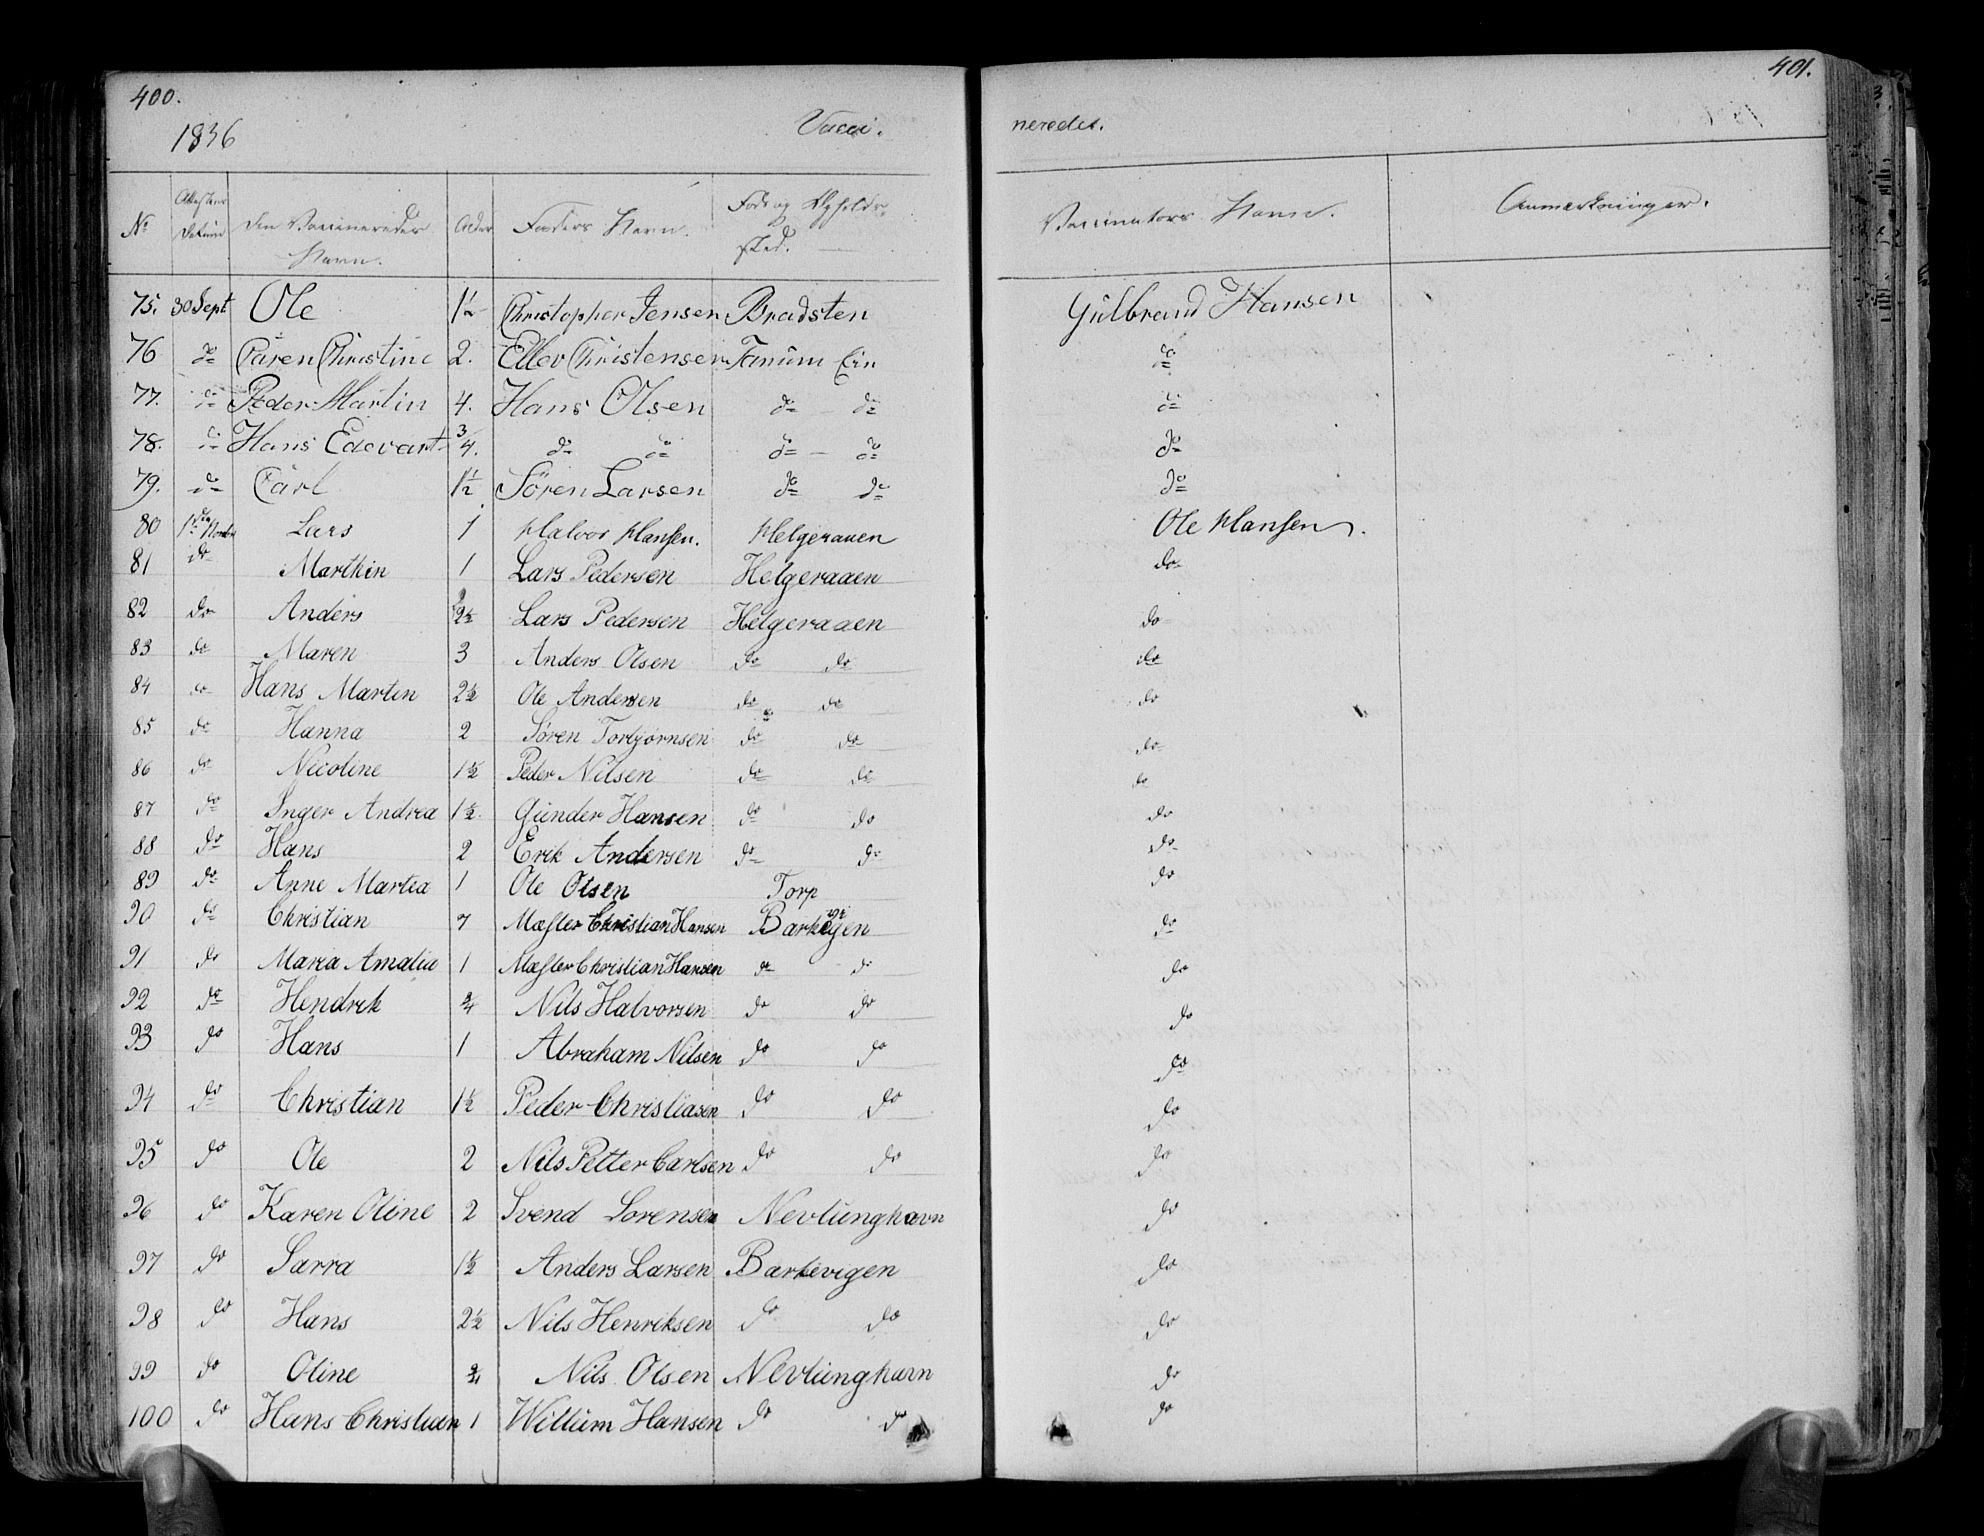 400.
401.
1836
Vacci.
neredes.
No Attestens Datum Den Vaccineredes Navn. Alder Faders Navn. Føde og Opholds-sted. Vaccinators Navn. Anmærkninger.
75. 30 Sept Ole 1½ Christopher Jensen Bradsten Gulbrand Hansen
76 do Caren Christine 2. Ellev Christensen Tanum Eie do
77. do Peder Martin 4. Hans Olsen do do do
78. do Hans Edevart 3/4. do do do – do do
79. do Carl 1½ Sören Larsen do do do
80 1ste Novbr Lars 1 Halvor Hansen. Helgeraaen Ole Hansen.
81 do Marthin 1 Lars Pedersen Helgeraaen do
82 do Anders 2½ Lars Pedersen Helgeraaen do
83 do Maren 3 Anders Olsen do do do
84 do Hans Martin 2½ Ole Andersen do do do
85 do Hanna 2 Sören Torbjørnsen do do do
86 do Nicoline 1½ Peder Nilsen do do do
87 do Inger Andrea 1½ Gunder Hansen do do do
88 do Hans 2 Erik Andersen do do do
89 do Anne Martea 1 Ole Olsen Torp do
90 do Christian 7 Mæster Christian Hansen Barkevigen do
91 do Maria Amalia 1 Mæster Christian Hansen do do do
92 do Hendrik 3/4 Nils Halvorsen do do do
93 do Hans 1 Abraham Nilsen do do do
94 do Christian 1½ Peder Christiasen do do do
95 do Ole 2 Nils Petter Carlsen do do do
96 do Karen Oline 2 Svend Lorensen Nevlunghavn do
97 do Sarra 1½ Anders Larsen Barkevigen do
98 do Hans 2½ Nils Henriksen do do do
99 do Oline 3/4 Nils Olsen Nevlunghavn do
100 do Hans Christian 1 Willum Hansen do do do